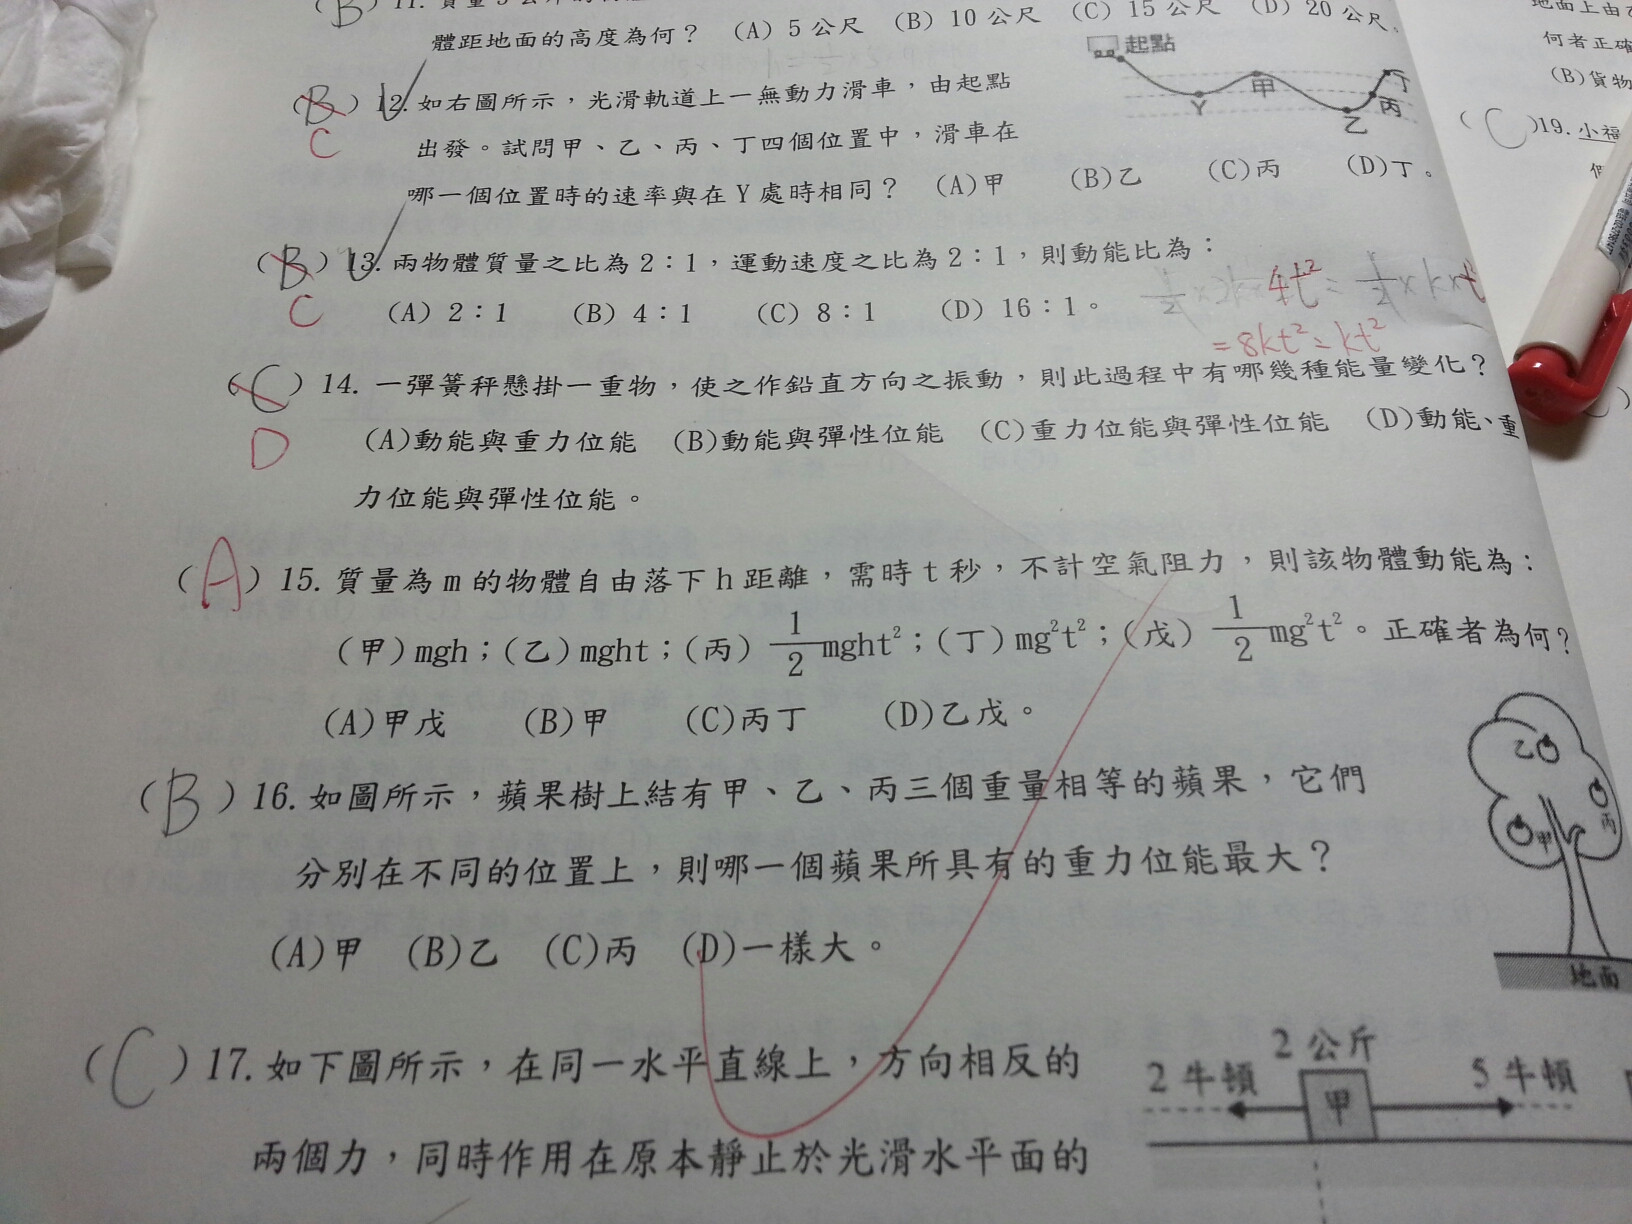 (B) 11.
體距地面的高度為何？ (A) 5公尺 (B) 10公尺 (C) 15公尺 (D) 20公尺。
(B) 12. 如右圖所示，光滑軌道上一無動力滑車，由起點
C
出發。試問甲、乙、丙、丁四個位置中，滑車在
哪一個位置時的速率與在Y處時相同？ (A)甲 (B)乙 (C)丙 (D)丁。
起點
甲
丁
Y
丙
乙
(B) 13. 兩物體質量之比為2：1，運動速度之比為2：1，則動能比為：
C
(A) 2：1 (B) 4：1 (C) 8：1 (D) 16：1。
4t²
= 8kt² = kt²
(C) 14. 一彈簧秤懸掛一重物，使之作鉛直方向之振動，則此過程中有哪幾種能量變化？
D
(A)動能與重力位能 (B)動能與彈性位能 (C)重力位能與彈性位能 (D)動能、重
力位能與彈性位能。
(A) 15. 質量為m的物體自由落下h距離，需時t秒，不計空氣阻力，則該物體動能為：
(甲)mgh；(乙)mght；(丙) 1/2 mght²；(丁)mg²t²；(戊) 1/2 mg²t²。正確者為何？
(A)甲戊 (B)甲 (C)丙丁 (D)乙戊。
(B) 16. 如圖所示，蘋果樹上結有甲、乙、丙三個重量相等的蘋果，它們
分別在不同的位置上，則哪一個蘋果所具有的重力位能最大？
(A)甲 (B)乙 (C)丙 (D)一樣大。
乙
丙
甲
地面
(C) 17. 如下圖所示，在同一水平直線上，方向相反的
兩個力，同時作用在原本靜止於光滑水平面的
2公斤
2牛頓
5牛頓
甲
地面上由
何者正確
(B)貨物
(C)19. 小福